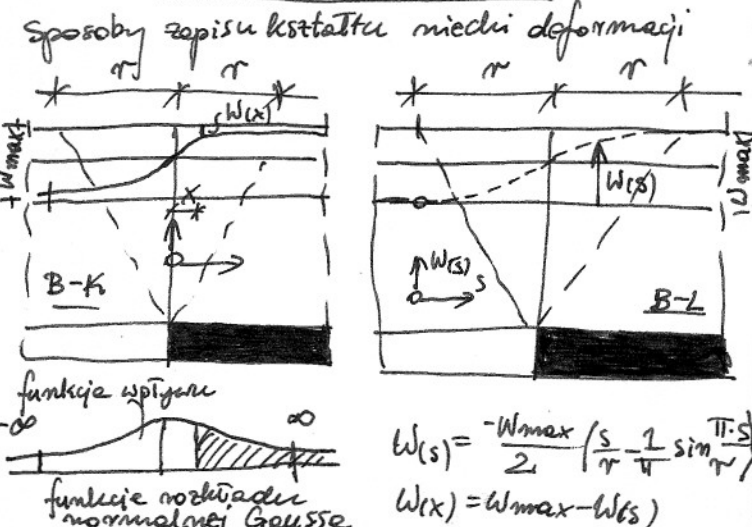 Sposoby zapisu kształtu niecki deformacji
r r r r
W(x)
+Wmax+
x
W(s)
|Wmax|
B-K
W(s)
s
B-L
funkcja wpływu
-∞ ∞
funkcja rozkładu
normalnej Gaussa
W(s) = -Wmax/2 (s/r - 1/π sin π·s/r)
W(x) = Wmax - W(s)